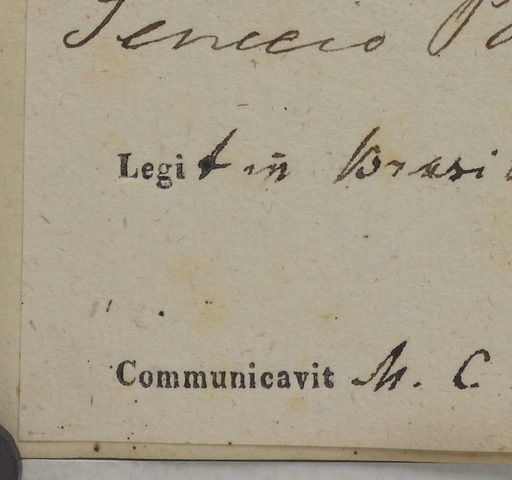 Senecio
Legit in Brasi
Communicavit M. C